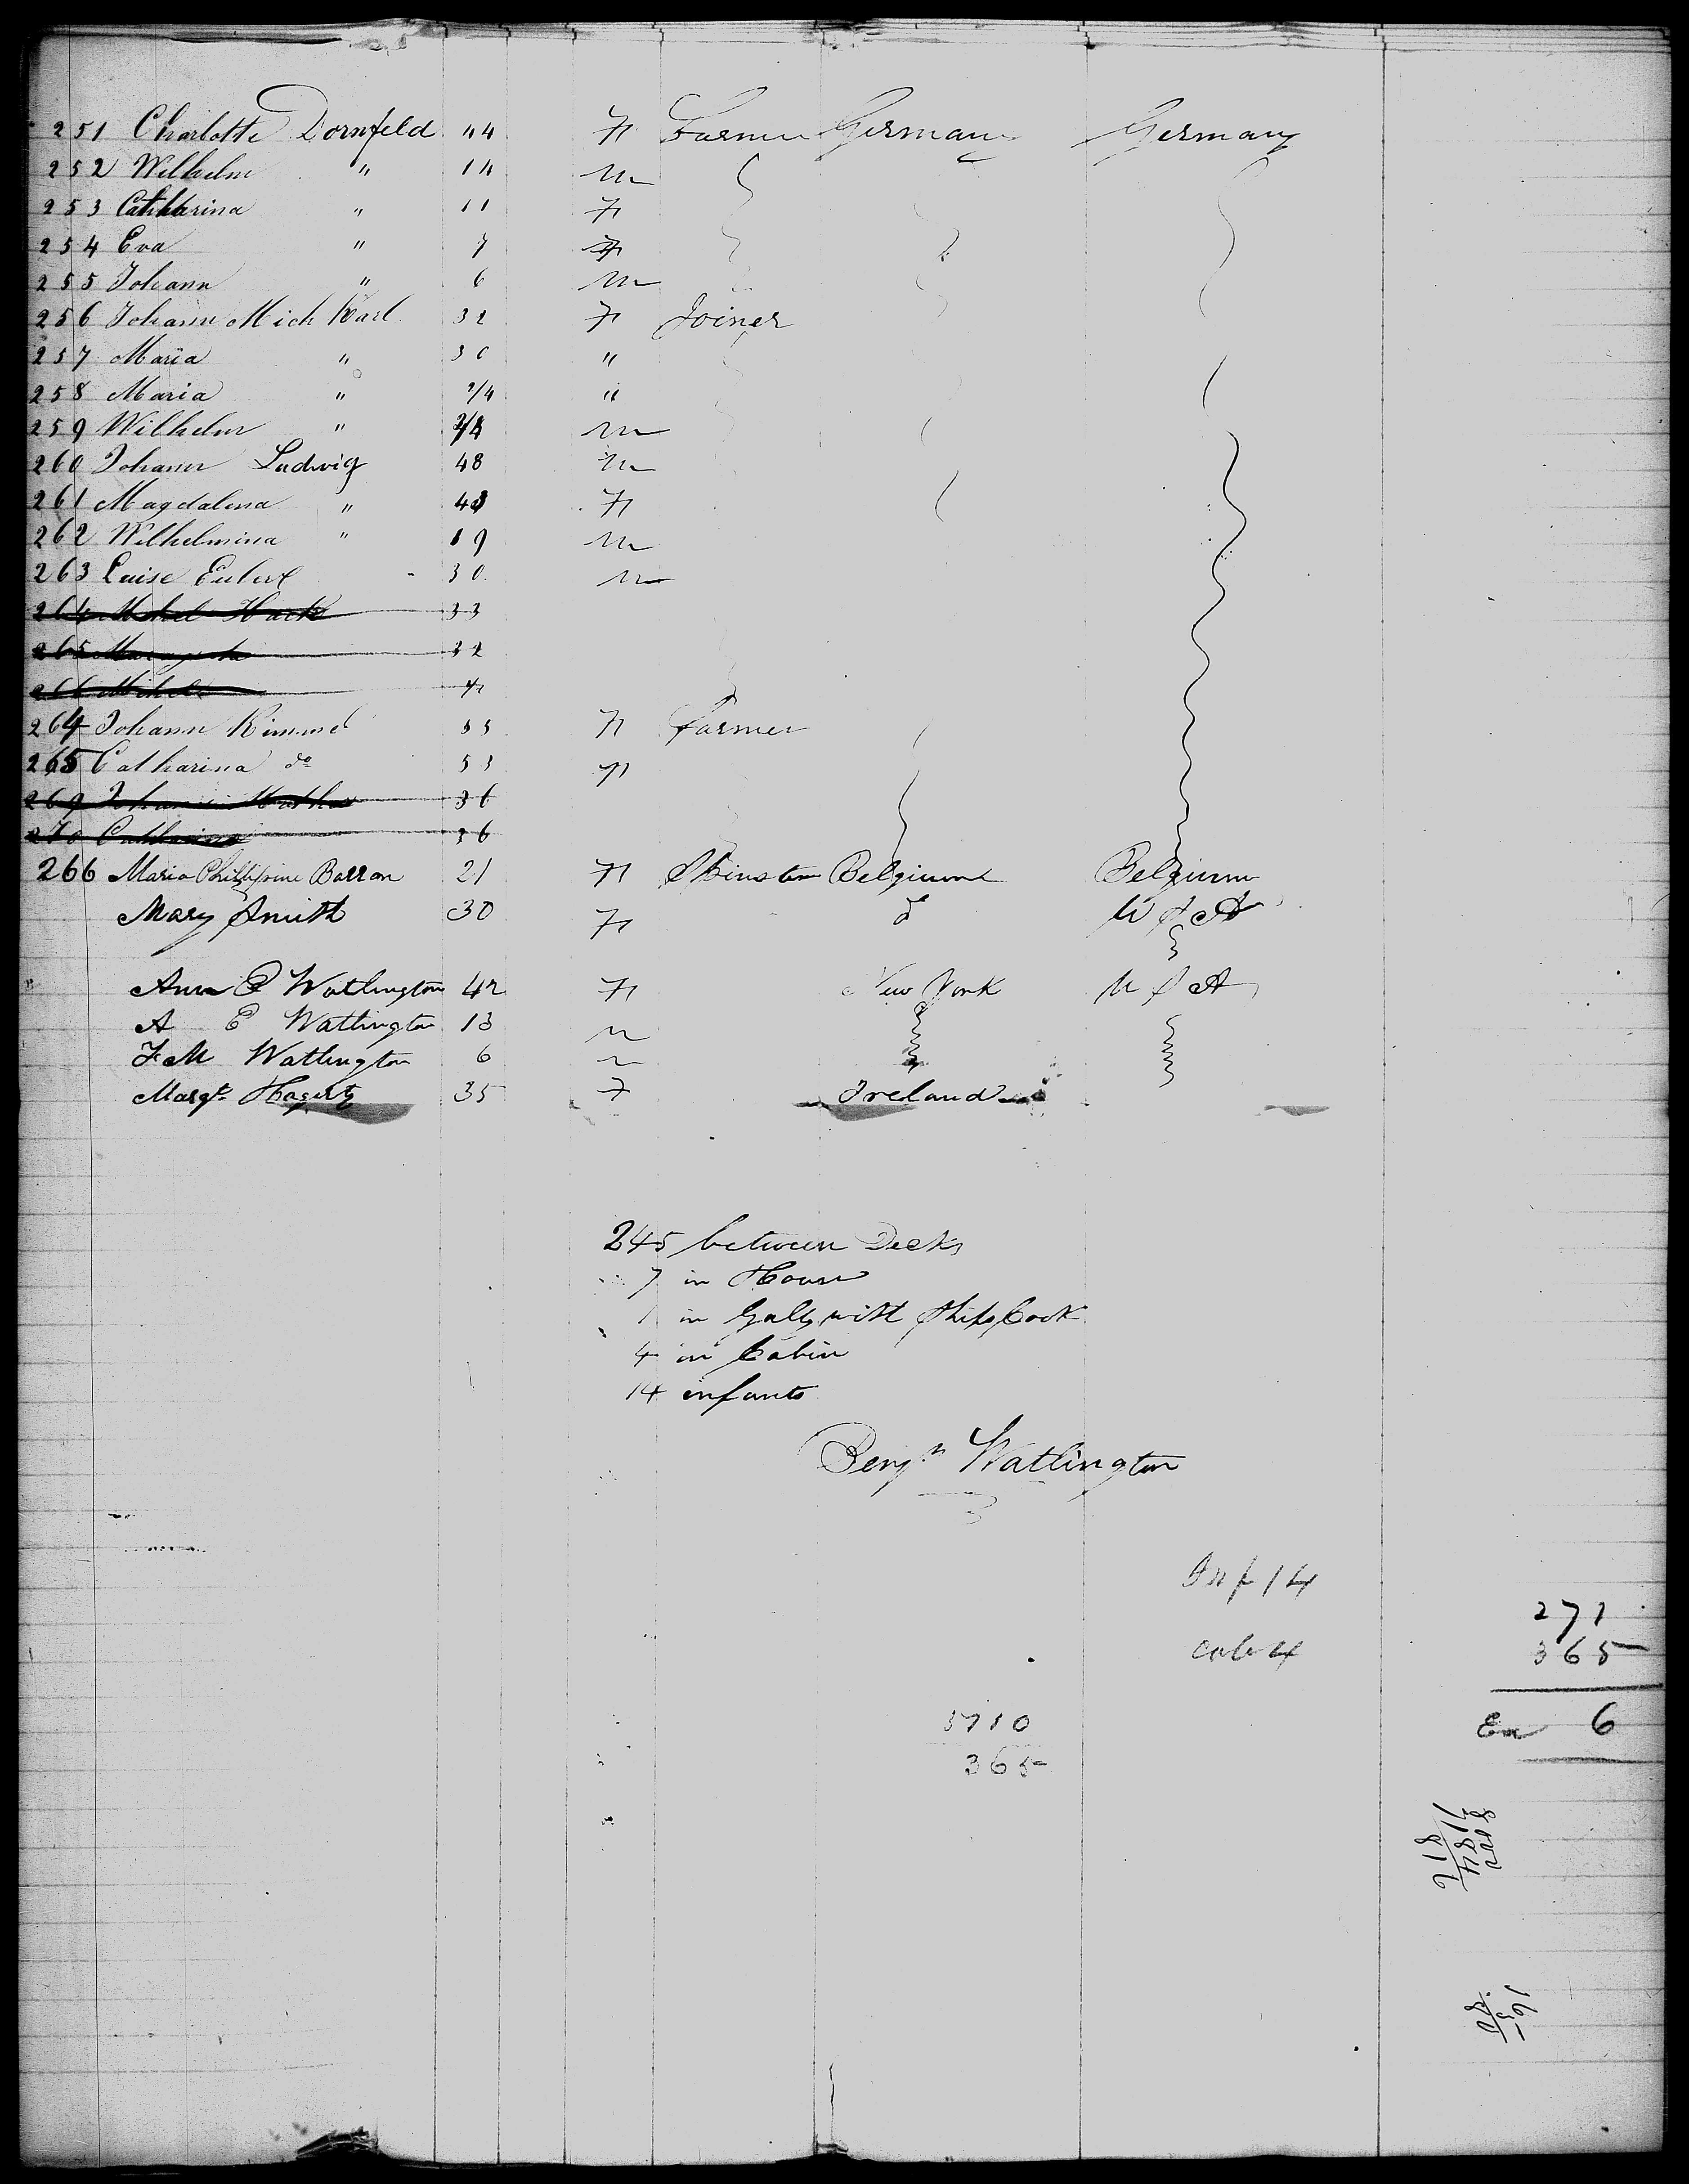 251 Charlotte Dornfeld 44 F Farmer Germany Germany
252 Wilhelm " 14 m
253 Catharina " 11 F
254 Eva " 7 F
255 Johann " 6 m
256 Johann Mich Karl 32 F Joiner
257 Maria " 30 "
258 Maria " 2/4 "
259 Wilhelm " m
260 Johann Ludwig 48 m
261 Magdalena " F
262 Wilhelmina " 19 m
263 Luise 30 m
33
32
264 Johann Kimmel 55 F farmer
265 Catharina do 53 F
36
270 Catharina 26
266 Maria Phillipine Barron 21 F Belgium Belgium
Mary Smith 30 F do U S A
Ann E Watlington 42 F New York U S A
A E Watlington 13 m
F M Watlington 6 m
Margt Hagerty 35 F Ireland
245 between Decks
7 in House
1 in Gally with Ships Cook
4 in Cabin
14 infants
Benjn Watlington
Inf 14
271
365
cab 4
Ex 6
5710
365